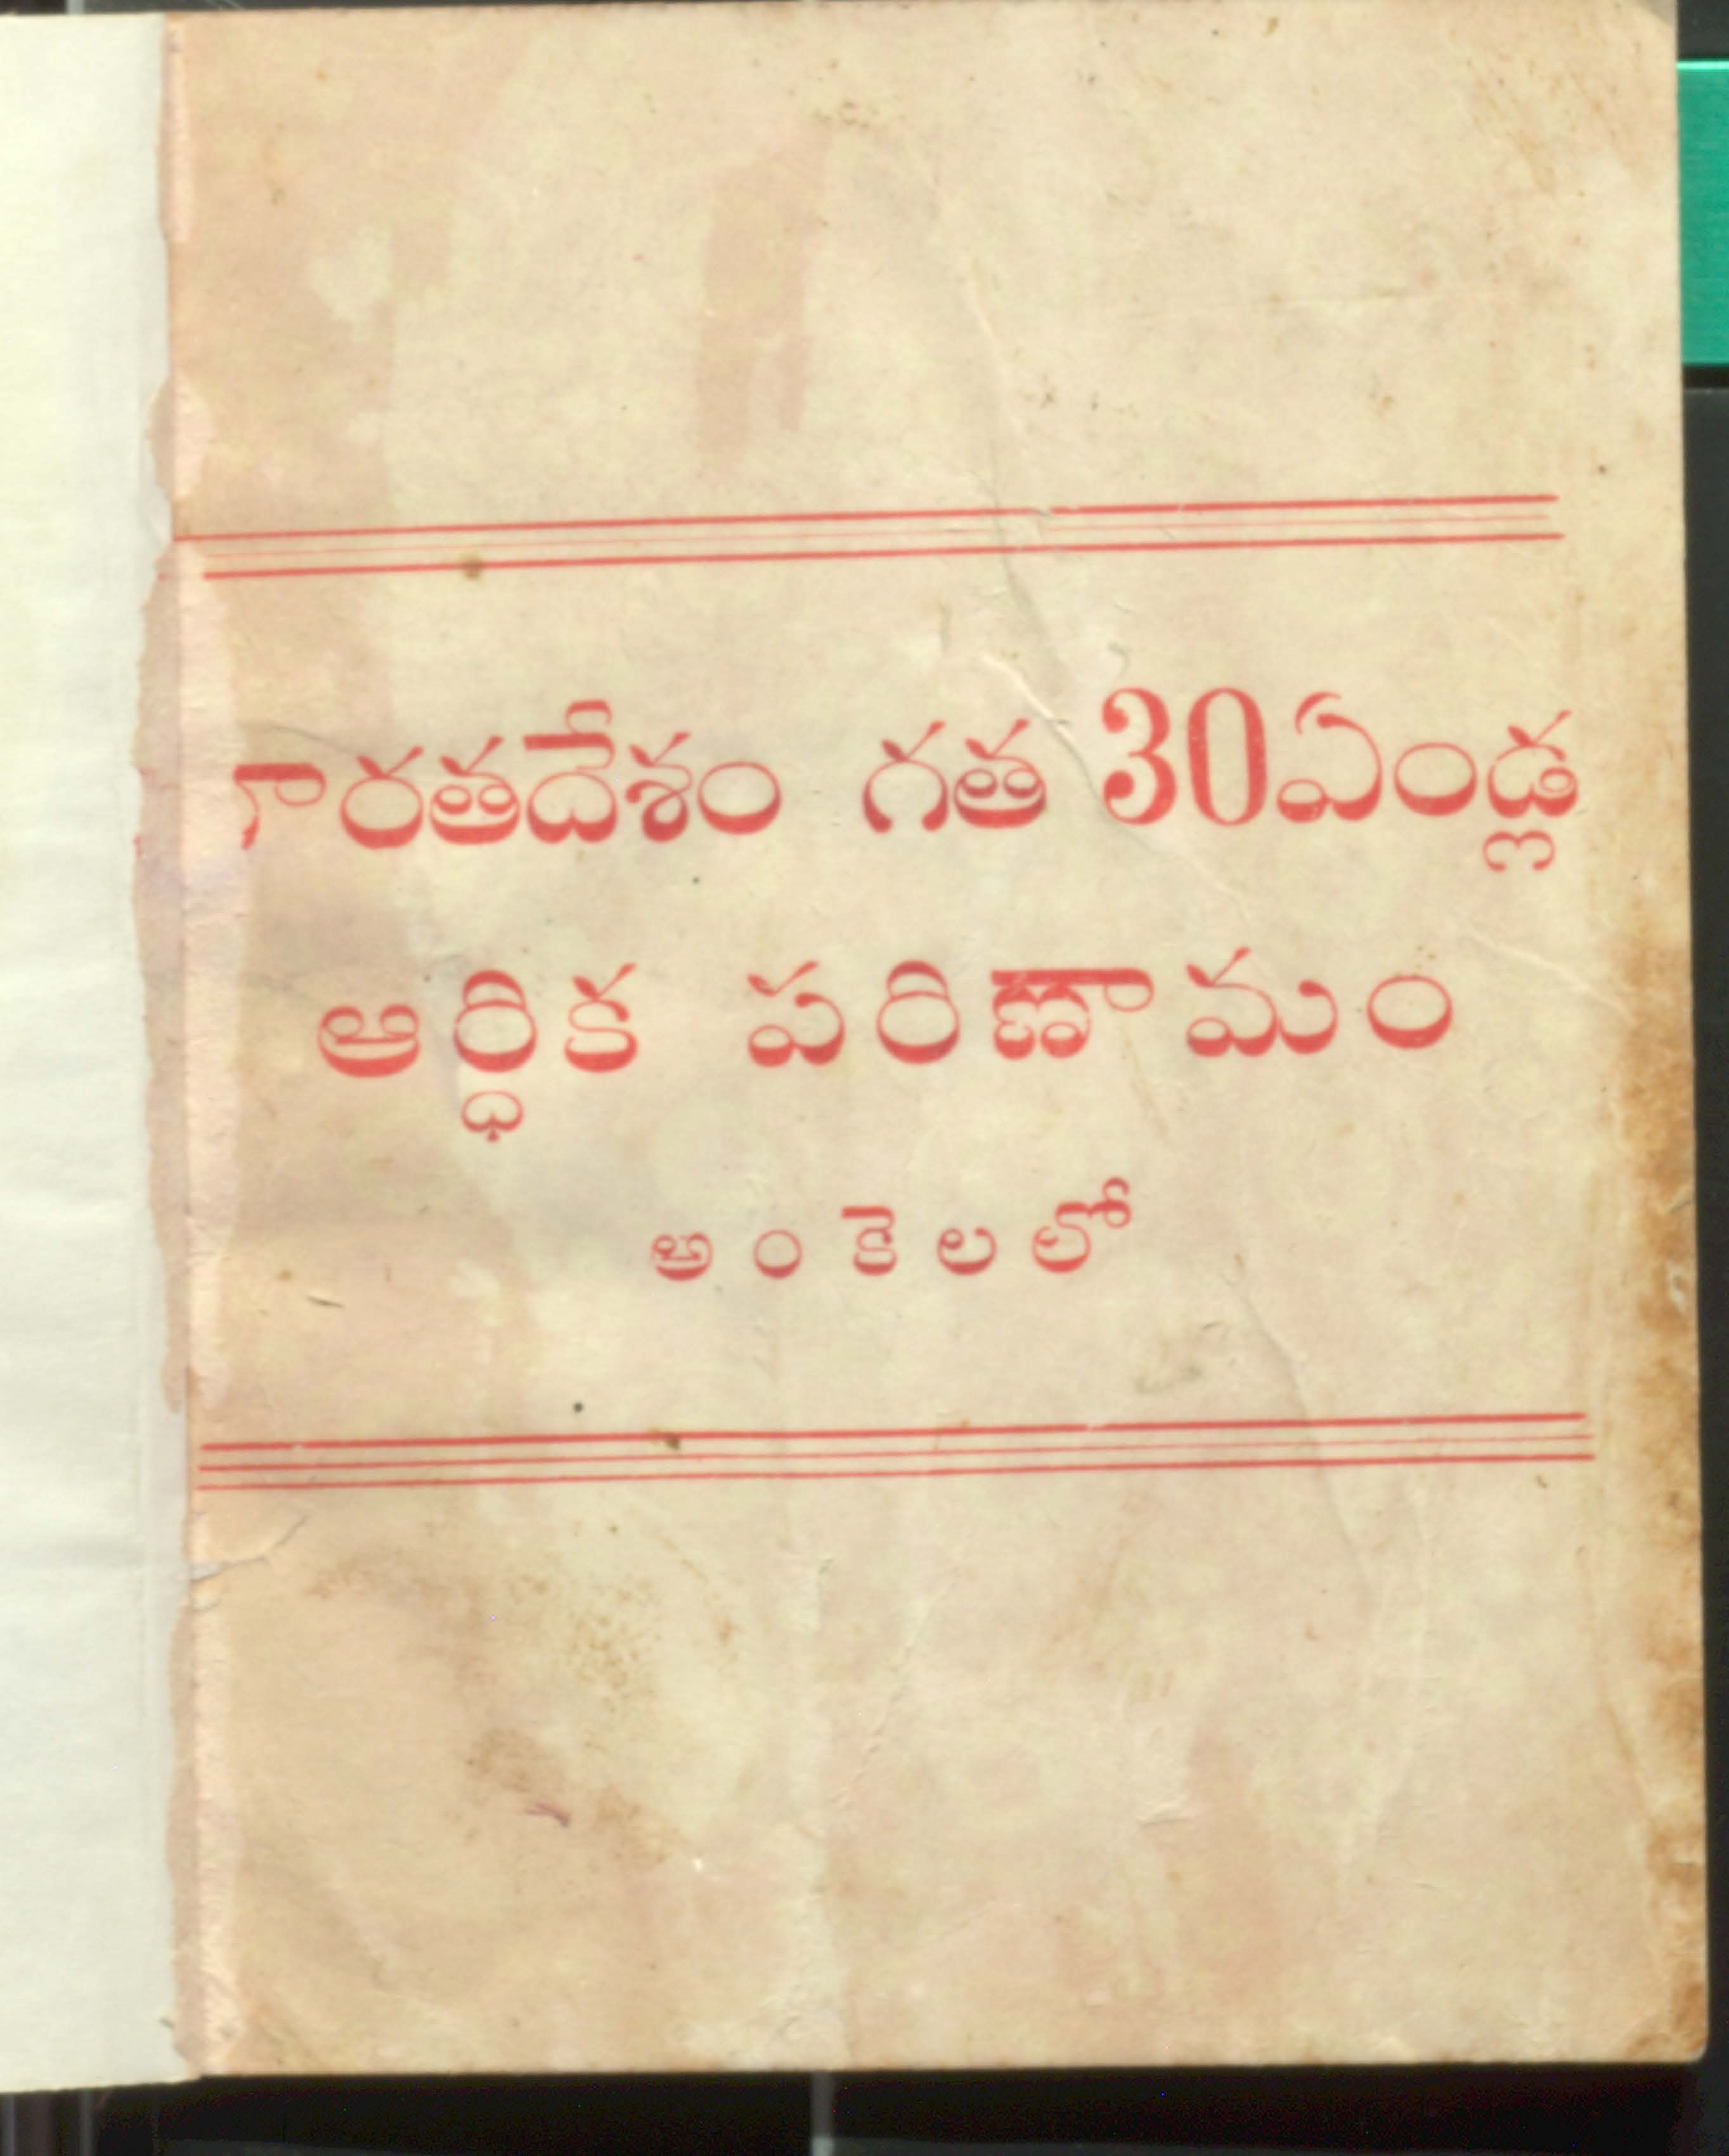 భారతదేశం గత 30 ఏండ్ల
ఆర్ధిక పరిణామం
అంకెలలో